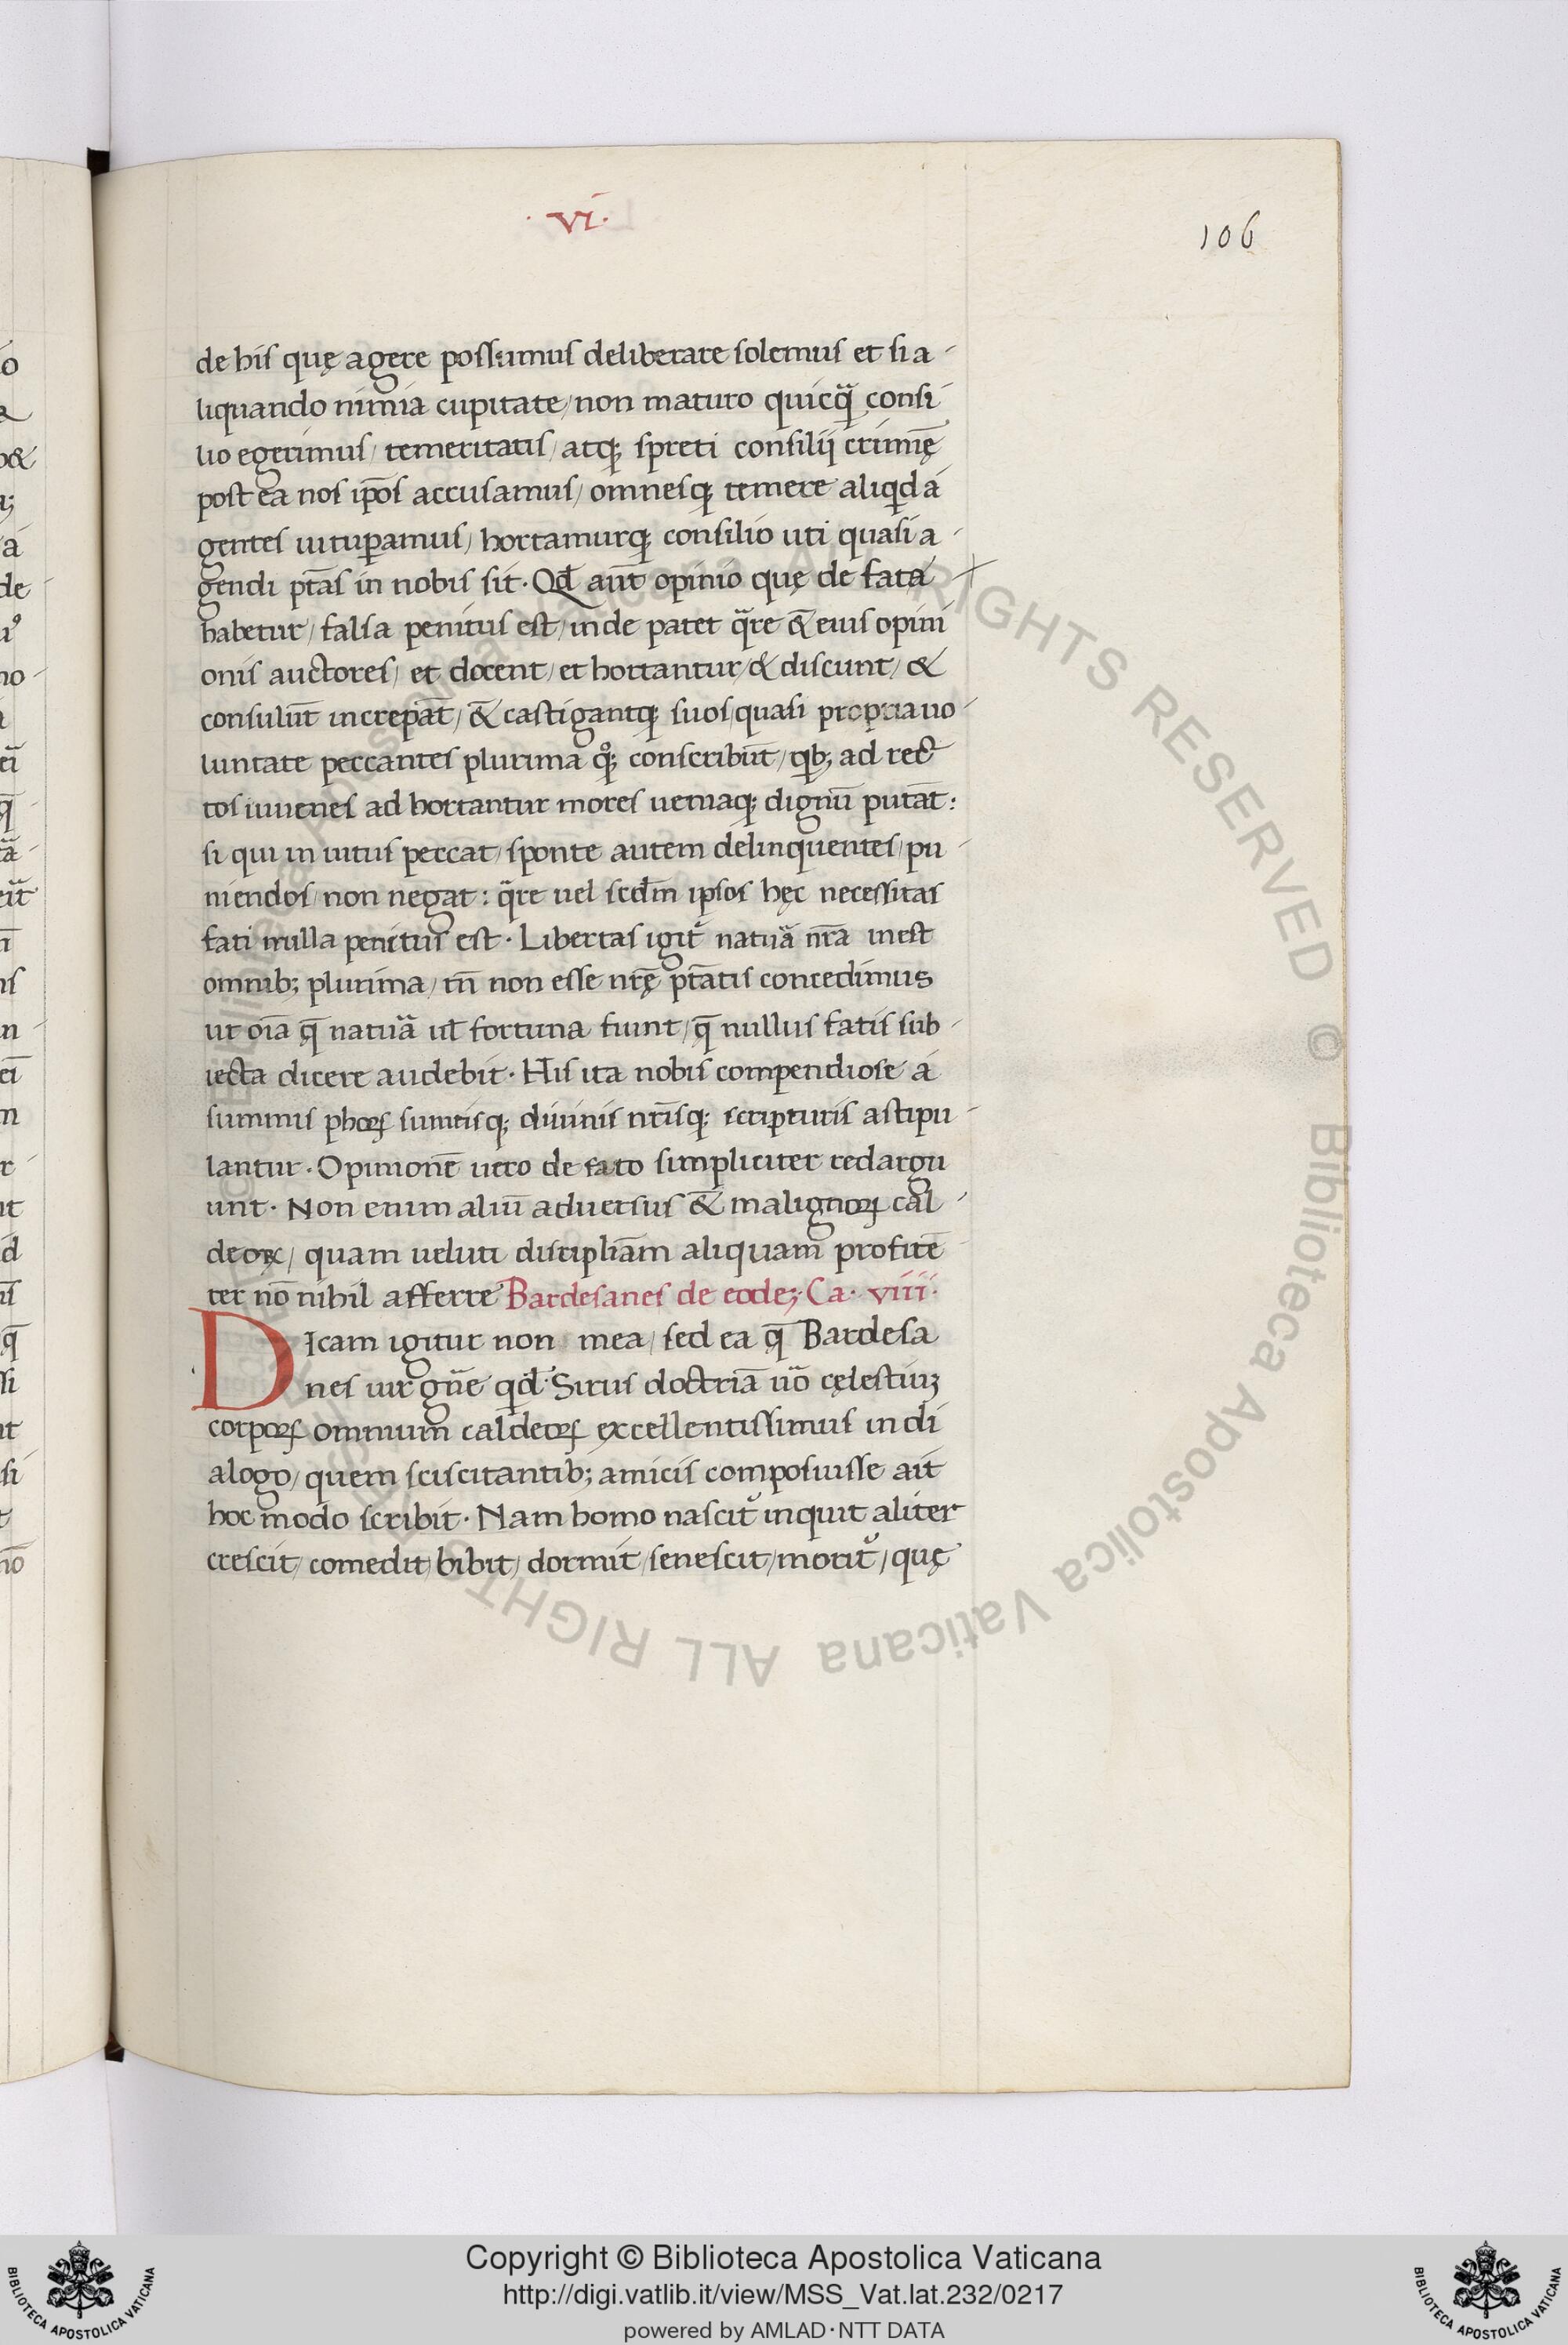 · vi ·
106
de his quę agere possumus deliberare solemus et si a-
liquando nimia cupitate/ non maturo quicq̃ consi
lio egerimus/ temeritatis/ atq; spreti consilij crimīę
post ea nos ip̄os accusamus/ omnesq; temere aliqd a
gentes uituꝑamus/ hortamurq; consilio uti quasi a-
gendi ptãs in nobis sit. Qđ aūt opinio quę de fata
habetur/ falsa penitus est/ inde patet q̃re & eius opini
onis auctores/ et docent/ et hortantur/ & discunt/ &
consulūt increpāt/ & castigantq; suos/ quasi propria uo-
luntate peccantes plurima qͦ; conscribūt/ qb; ad rec
tos iuuenes ad hortantur mores ueniaq; dignū putāt:
si qui in uitus peccat/ sponte autem delinquentes/ pu-
niendos/ non negat: q̃re uel scđm ipsos hęc necessitas
fati nulla penitus est. Libertas igit᷑ natuã nr̄a inest
omnib; plurima/ tn̄ non esse nr̄ę ptātis concedimus
ut oīa q̄ natuã ul̄ fortuna fiunt/ q̄ nullus fatis sub-
iecta dicere audebit. His ita nobis compendiose a
summis phoꝝ sumtisq; diuinis nr̄isq; scripturis astipu-
lantur. Opinionē uero de fato simpliciter redargu
unt. Non enim aliū aduersus & malignoꝝ cal-
deoꝝ/ quam ueluti discipliām aliquam profite
ter nō nihil afferre Bardesanes de eodeꝫ Ca. viii.
DIcam igitur non mea/ sed ea q̄ Bardesa
nes uir gn̄e qđ Sirus doctriā ūo cęlestiuꝫ
corpoꝝ omnium caldeoꝝ excellentissimus in di
alogo/ quem sciscitantib; amicis composuisse ait
hoc modo scribit. Nam homo nascit᷑ inquit aliter
crescit/ comedit/ bibit/ dormit/ senescit/ morit᷑/ quę
Copyright © Biblioteca Apostolica Vaticana
http://digi.vatlib.it/view/MSS_Vat.lat.232/0217
powered by AMLAD·NTT DATA